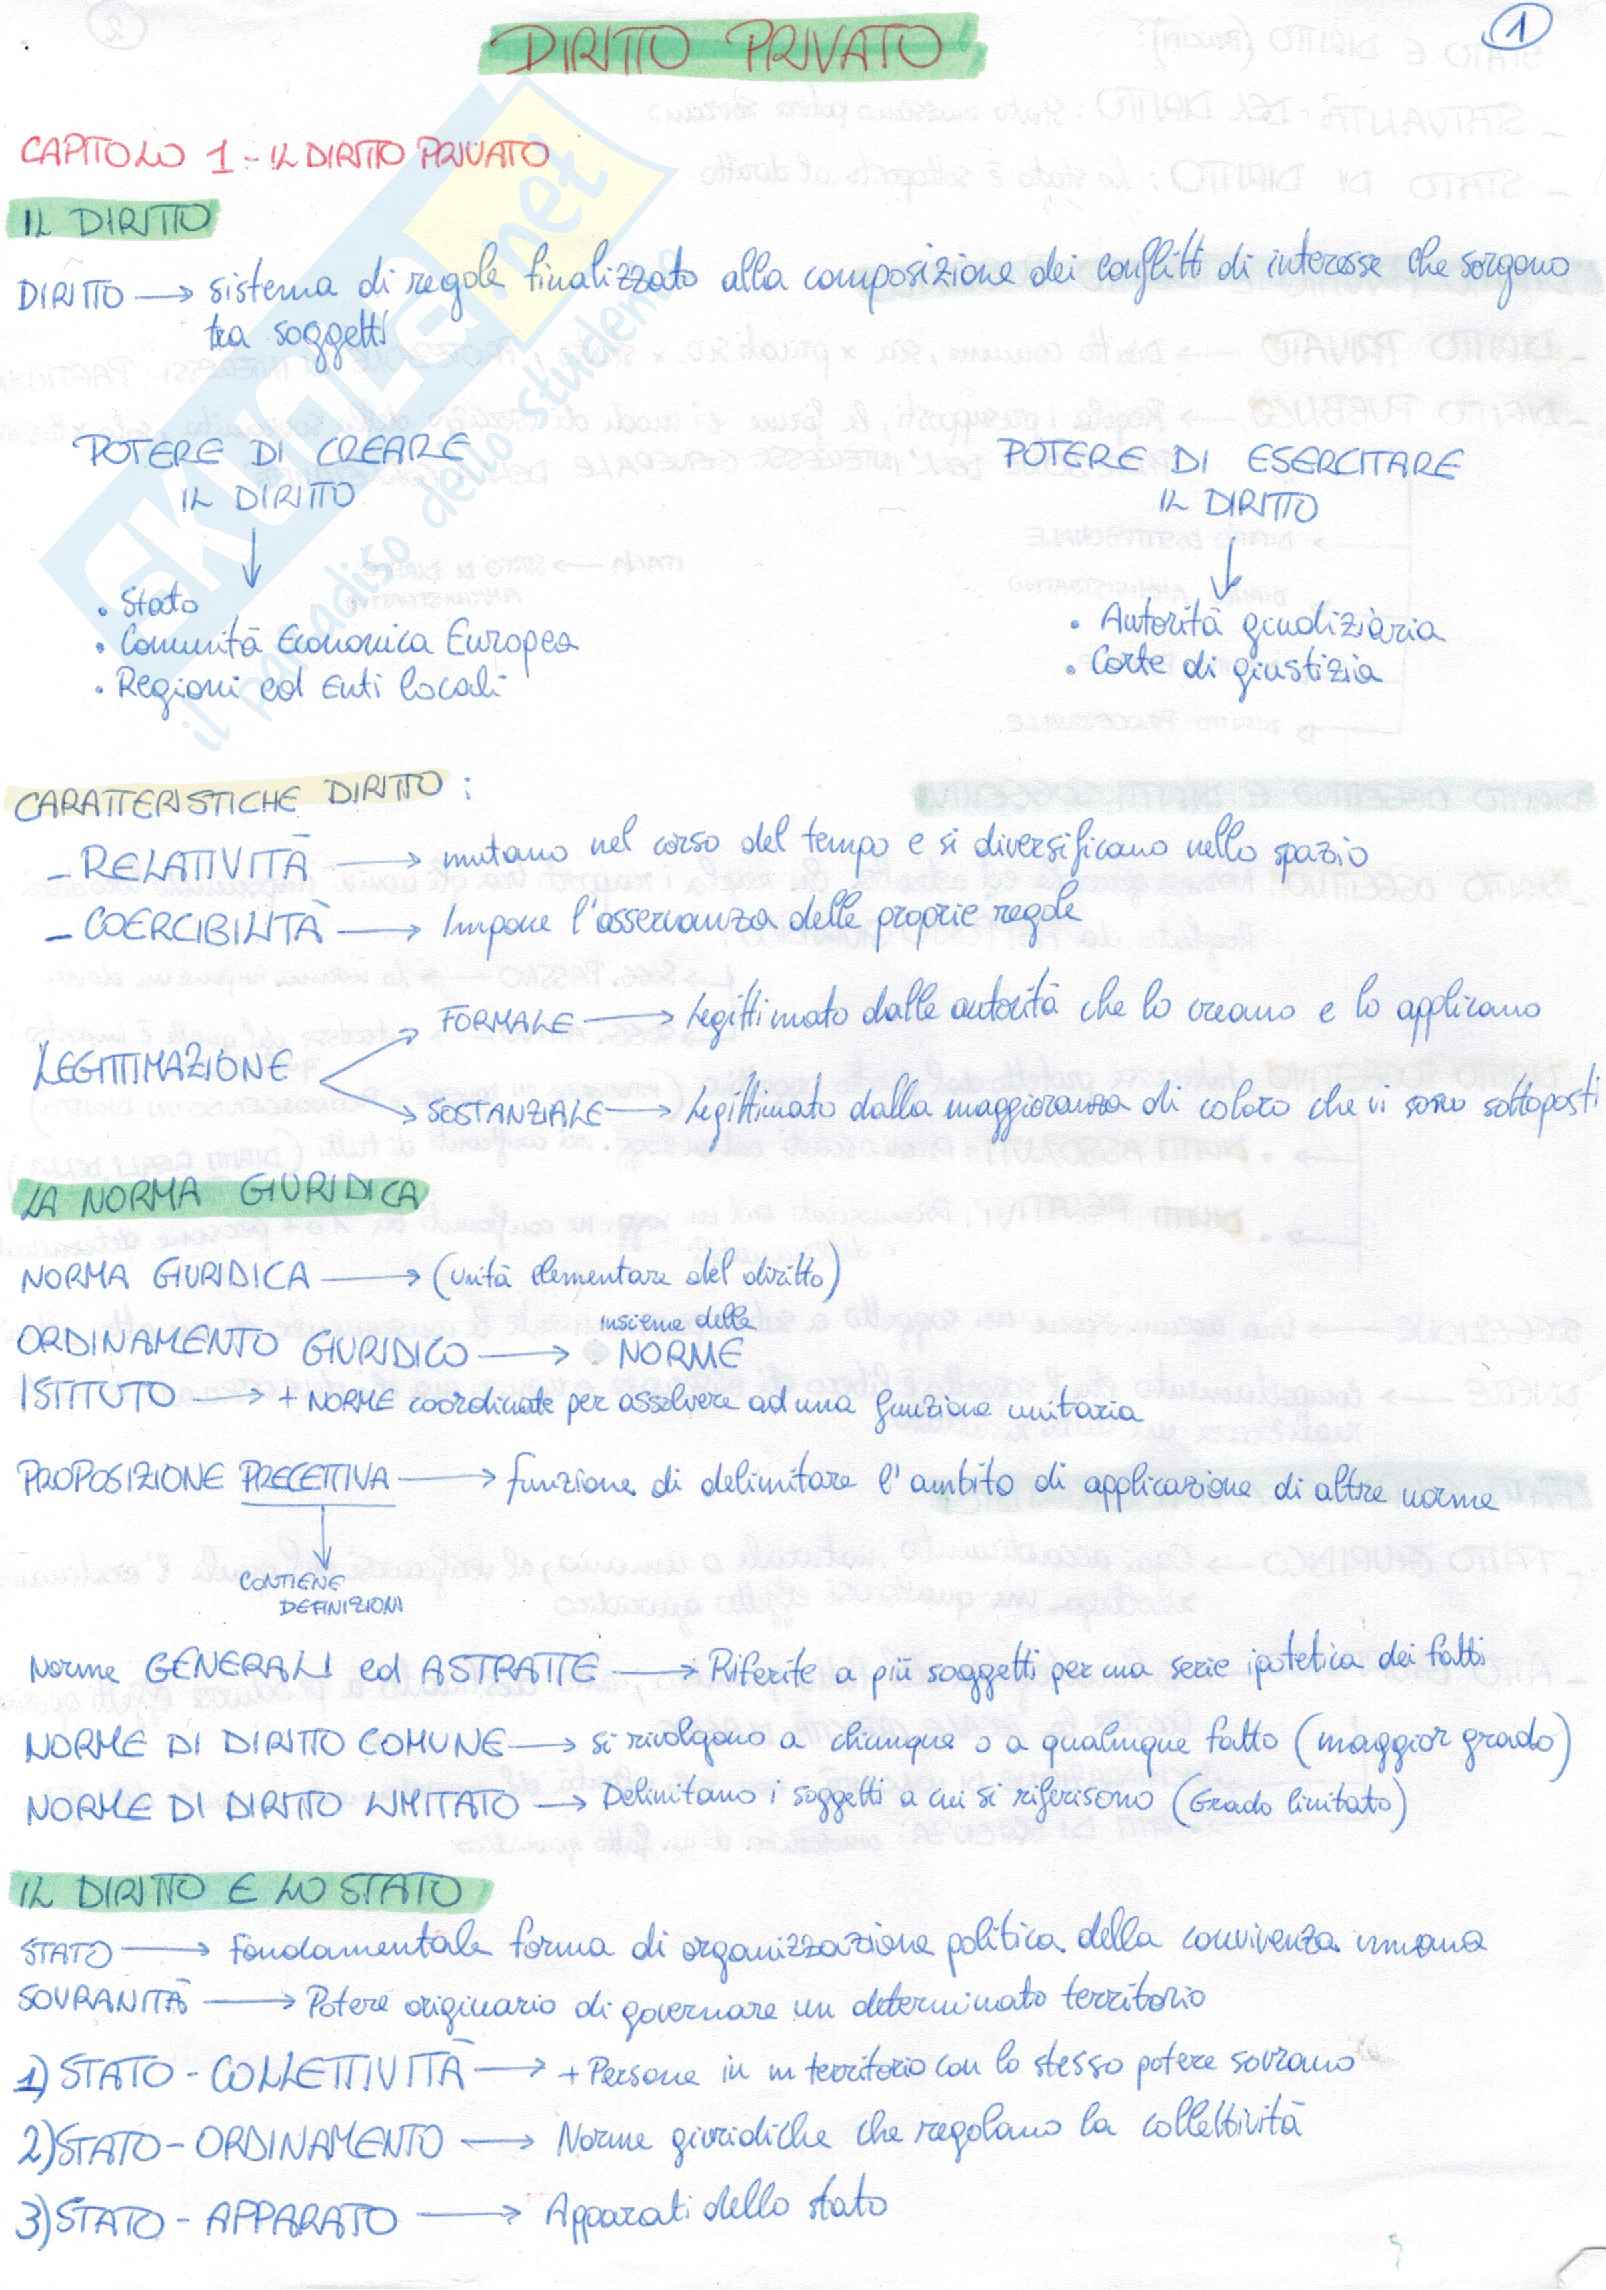 1
DIRITTO PRIVATO
CAPITOLO 1 - IL DIRITTO PRIVATO
IL DIRITTO
DIRITTO → sistema di regole finalizzato alla composizione dei conflitti di interesse che sorgono
tra soggetti
POTERE DI CREARE
IL DIRITTO
↓
• Stato
• Comunità Economica Europea
• Regioni ed Enti locali
POTERE DI ESERCITARE
IL DIRITTO
↓
• Autorità giudiziaria
• Corte di giustizia
SKUOLA.net
il paradiso dello studente
CARATTERISTICHE DIRITTO :
- RELATIVITÀ → mutano nel corso del tempo e si diversificano nello spazio
- COERCIBILITÀ → Impone l'osservanza delle proprie regole
LEGITTIMAZIONE
FORMALE → Legittimato dalle autorità che lo creano e lo applicano
SOSTANZIALE → Legittimato dalla maggioranza di coloro che vi sono sottoposti
LA NORMA GIURIDICA
NORMA GIURIDICA → (unità elementare del diritto)
ORDINAMENTO GIURIDICO → insieme delle NORME
ISTITUTO → + NORME coordinate per assolvere ad una funzione unitaria
PROPOSIZIONE PRECETTIVA → funzione di delimitare l'ambito di applicazione di altre norme
↓
CONTIENE
DEFINIZIONI
Norme GENERALI ed ASTRATTE → Riferite a più soggetti per una serie ipotetica dei fatti
NORME DI DIRITTO COMUNE → si rivolgono a chiunque o a qualunque fatto (maggior grado)
NORME DI DIRITTO LIMITATO → Delimitano i soggetti a cui si riferisono (Grado limitato)
IL DIRITTO E LO STATO
STATO → Fondamentale forma di organizzazione politica della convivenza umana
SOVRANITÀ → Potere originario di governare un determinato territorio
1) STATO - COLLETTIVITÀ → + Persone in un territorio con lo stesso potere sovrano
2) STATO - ORDINAMENTO → Norme giuridiche che regolano la collettività
3) STATO - APPARATO → Apparati dello stato